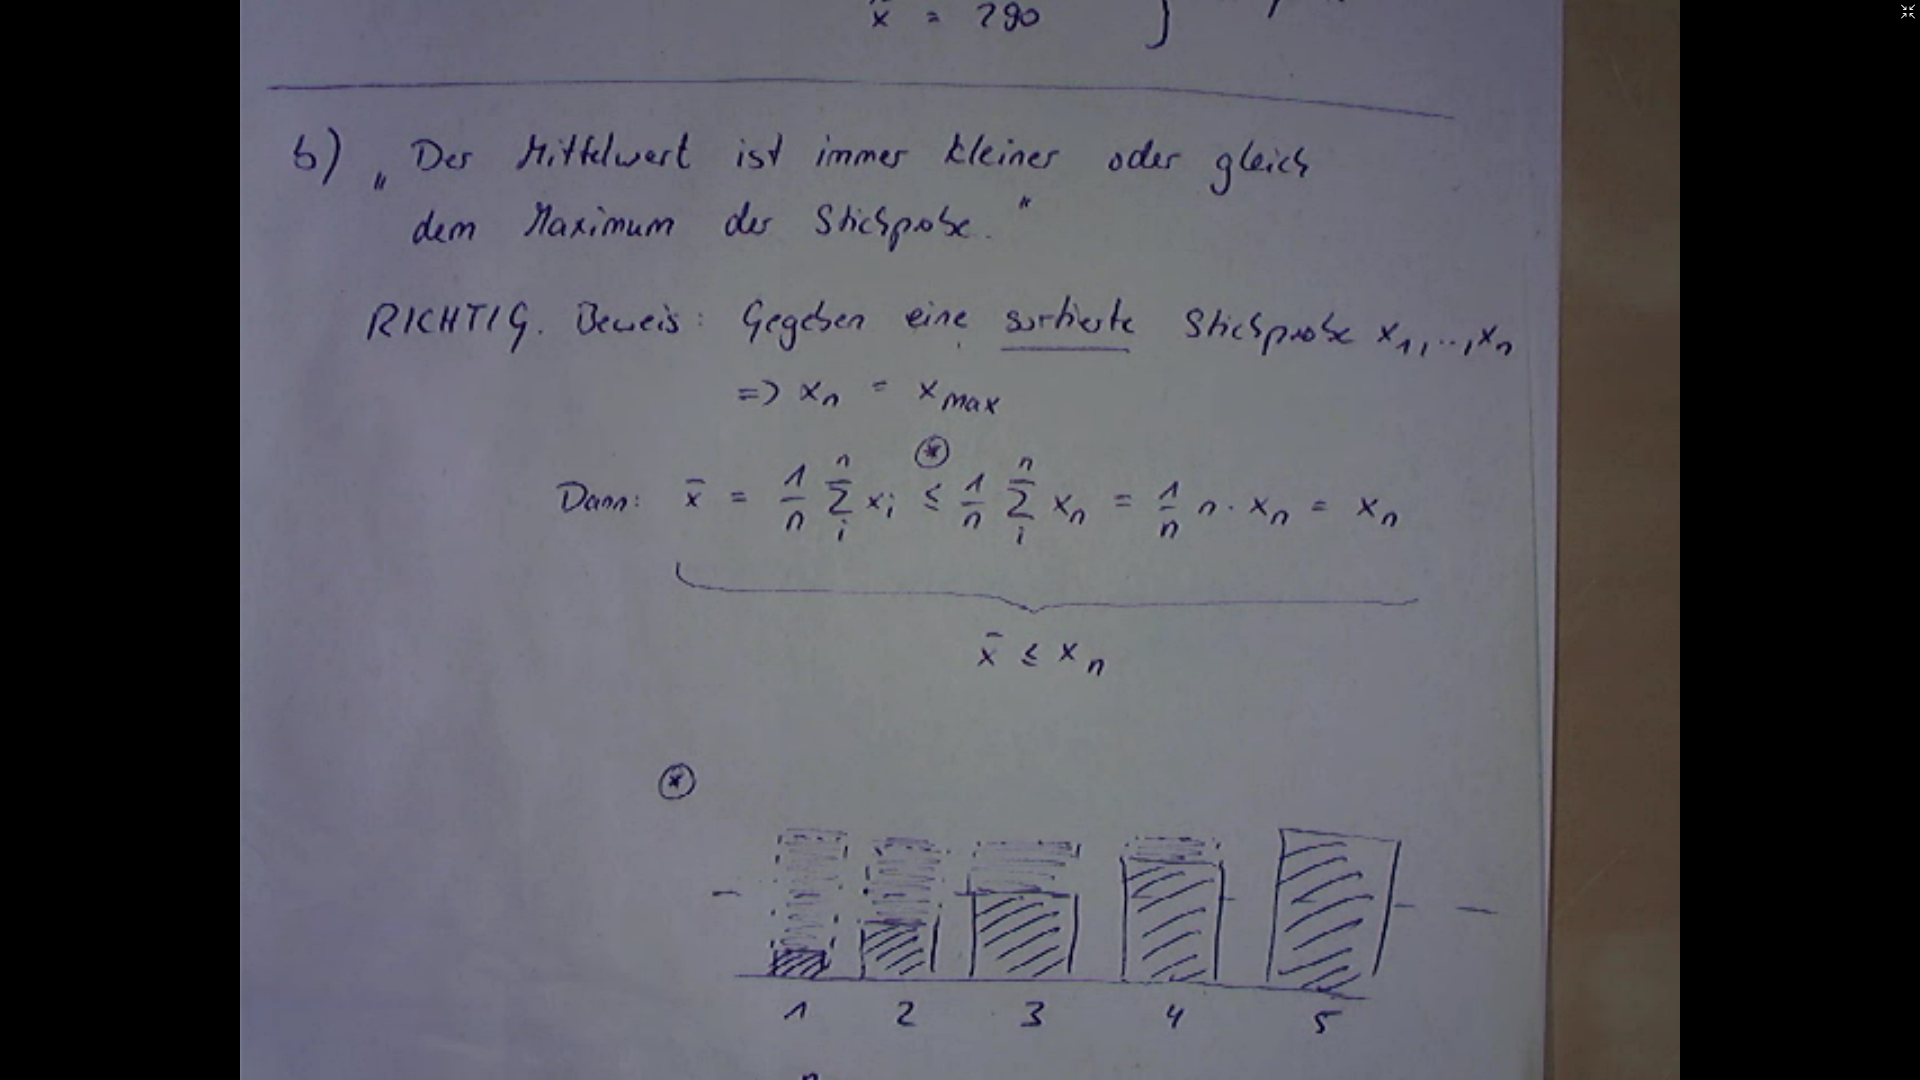 x̄ = 290 }
b) „Der Mittelwert ist immer kleiner oder gleich
dem Maximum der Stichprobe."
RICHTIG. Beweis: Gegeben eine sortierte Stichprobe x₁,..,xₙ
=> xₙ = x_max
⊛
Dann: x̄ = 1/n Σᵢⁿ xᵢ ≤ 1/n Σᵢⁿ xₙ = 1/n n · xₙ = xₙ
x̄ ≤ xₙ
⊛
1 2 3 4 5